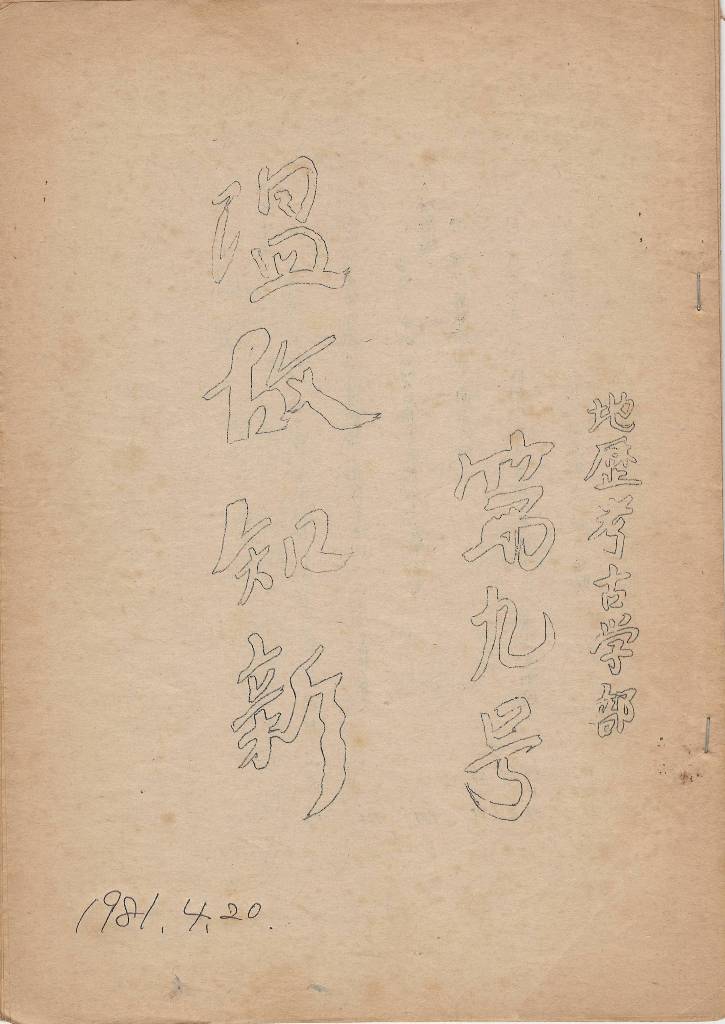 地歴考古学部
第九号
温故知新
1981.4.20.